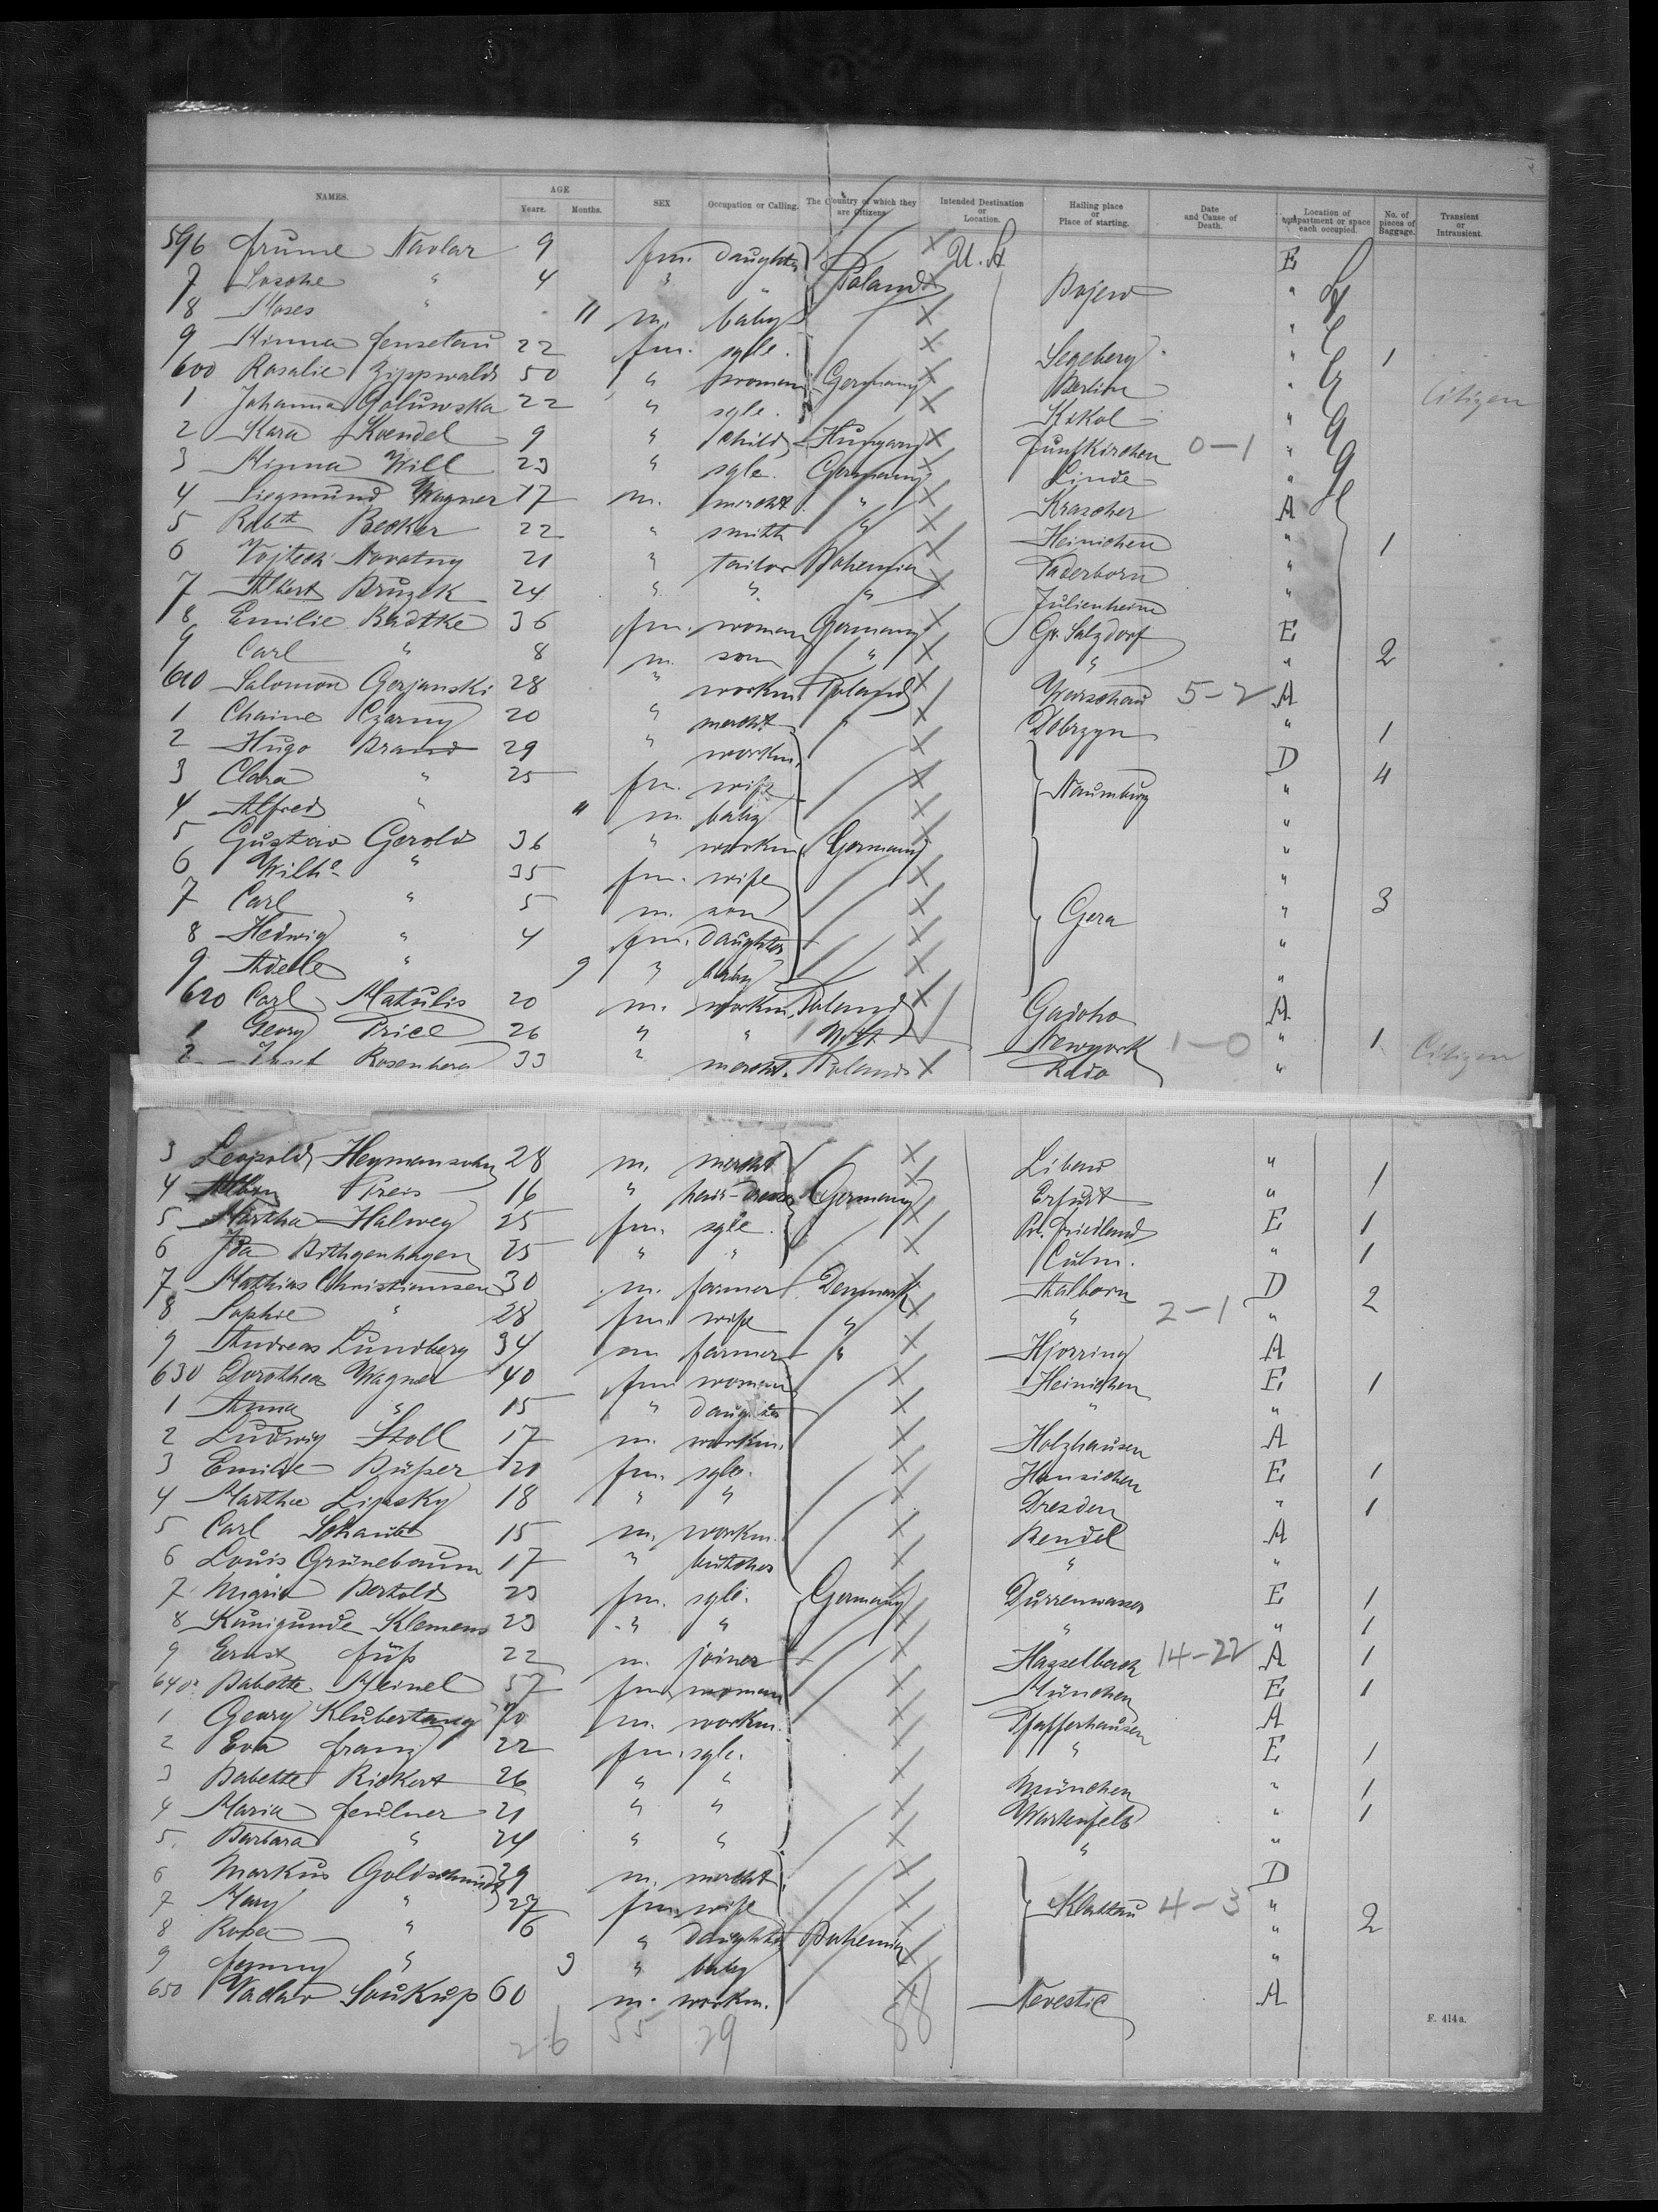 NAMES. AGE Years. Months. SEX Occupation or Calling. The Country of which they are Citizens. Intended Destination or Location. Hailing place or Place of starting. Date and Cause of Death. Location of compartment or space each occupied. No. of pieces of Baggage. Transient or Intransient.
596 Frume Navlar 9 fm. daughter U.St E
7 Sosche " 4 " " Poland Bojew "
8 Moses " 11 m. baby "
9 Minna Jensetau 22 fm. sgle. Segeberg " 1
600 Rosalie Zippwald 50 " woman Germany Berlin " Citizen
1 Johanna Goluwska 22 " sgle. Kikol "
2 Klara Kvendel 9 " child Hungary Fünfkirchen 0-1 "
3 Minna Will 23 " sgle. Germany Linde "
4 Siegmund Wagner 17 m. mercht. " Krascher A
5 Robt Becker 22 " smith " Heinichen " 1
6 Vojtech Novatny 21 " tailor Bohemia Paderborn "
7 Albert Bruzek 24 " " " Julienheim "
8 Emilie Badtke 36 fm. woman Germany Gr. Salzdorf E
9 Carl " 8 m. son " " " 2
610 Salomon Gorjanski 28 " workm. Poland Warschau 5-2 A
1 Chaine Czarny 20 " mercht. " Dobrzyn " 1
2 Hugo Brand 29 " workm. D
3 Clara " 25 fm. wife Naumburg " 4
4 Alfred " 11 m. baby "
5 Gustav Gerold 36 " workm. Germany "
6 Wilhe " 35 fm. wife "
7 Carl " 5 m. son Gera " 3
8 Hedwig " 4 fm. daughter "
9 Adele " 9 " baby "
620 Carl Matulis 20 m. workm. Poland Gadoho A
1 Georg Price 26 " " Newyork 1-0 " 1 Citizen
2 Rosenberg 33 " mercht. Poland Rado "
3 Leopold Heymansohn 28 m. mercht Libau " 1
4 Albin Preis 16 " hair-dresser Germany Erfurt "
5 Martha Halwey 25 fm. sgle. Pr. Friedland E 1
6 Ida Bithgenhagen 25 " " Culm. " 1
7 Mathias Christiansen 30 m. farmer Denmark Aalborn D 2
8 Sophie " 28 fm. wife " " 2-1 "
9 Andreas Lundberg 34 m farmer " Hjorring A
630 Dorothea Wagner 40 fm woman Heinichen E 1
1 Anna " 15 " daughter " "
2 Ludwig Stoll 17 m. workm. Holzhausen A
3 Emilie Büßer 21 fm. sgle. Hanichen E 1
4 Martha Lipsky 18 " " Dresden " 1
5 Carl Schaub 15 m. workm. Bendel A
6 Louis Grünebaum 17 " butcher " "
7 Migria Bertold 23 fm. sgle. Germany Dürrenwaser E 1
8 Kunigunde Klemens 23 " " " " 1
9 Ernst Füß 22 m. joiner Hasselbach 14-22 A 1
640 Babette Meinel 57 fm. woman München E 1
1 Georg Klubertanz 20 m. workm. Pfafferhausen A
2 Eva Franz 22 fm. sgle. " E 1
3 Babette Rickert 26 " " München " 1
4 Maria Feulner 21 " " Wartenfels " 1
5. Barbara " 24 " " " "
6 Markus Goldschmidt 29 m. mercht D
7 Mary " 27 fm. wife Klattau 4-3 "
8 Rosa " 6 " daughter Bohemia " 2
9 Jenny " 9 " baby "
650 Vaclav Soukup 60 m. workm. Nevestic A
26 55 29 88
F. 414a.